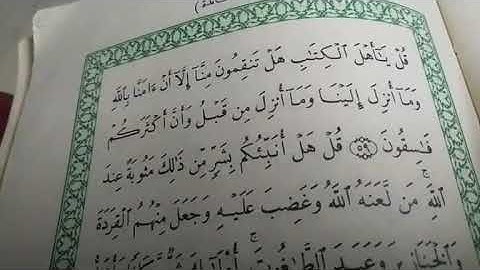 قُلْ يَٰٓأَهْلَ ٱلْكِتَٰبِ هَلْ تَنقِمُونَ مِنَّآ إِلَّآ أَنْ ءَامَنَّا بِٱللَّهِ
وَمَآ أُنزِلَ إِلَيْنَا وَمَآ أُنزِلَ مِن قَبْلُ وَأَنَّ أَكْثَرَكُمْ
فَٰسِقُونَ ﴿٥٩﴾ قُلْ هَلْ أُنَبِّئُكُم بِشَرٍّ مِّن ذَٰلِكَ مَثُوبَةً عِندَ
ٱللَّهِ ۚ مَن لَّعَنَهُ ٱللَّهُ وَغَضِبَ عَلَيْهِ وَجَعَلَ مِنْهُمُ ٱلْقِرَدَةَ
وَٱلْخَنَازِيرَ وَعَبَدَ ٱلطَّٰغُوتَ ۚ أُو۟لَٰٓئِكَ شَرٌّ مَّكَانًا